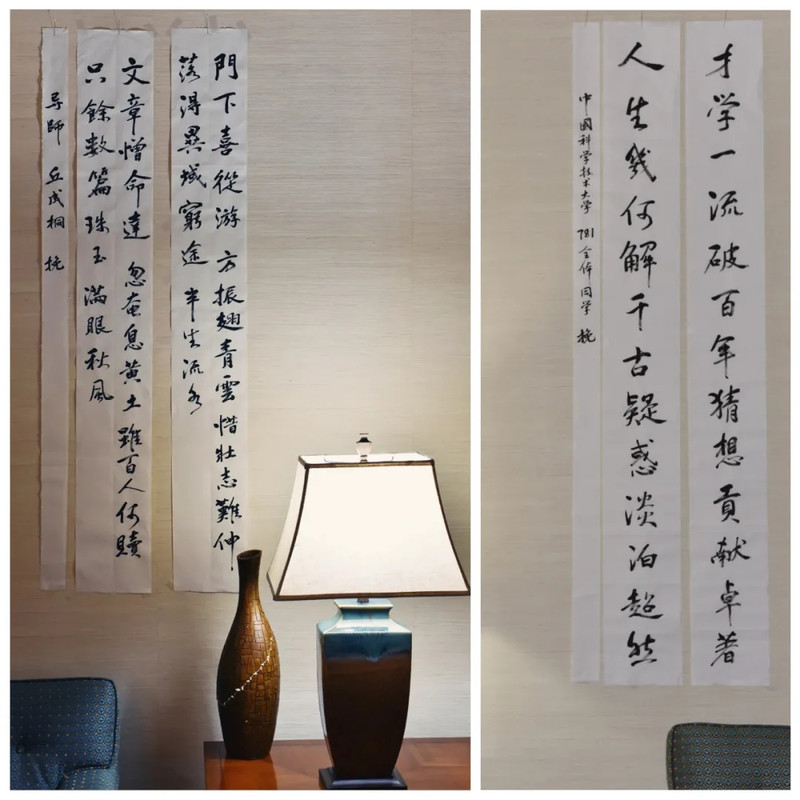 門下喜從游 方振翅青雲 惜壯志難伸
落得異域窮途 半生流水
文章憎命達 忽奄息黃土 雖百人何贖
只餘數篇珠玉 滿眼秋風
导師 丘成桐 挽
才学一流破百年猜想貢献卓著
人生幾何解千古疑惑淡泊超然
中國科学技术大学 781 全体同学 挽